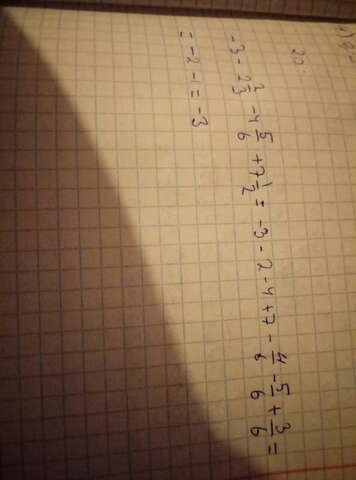 20
-3 - 2 2/3 - 4 5/6 + 7 1/2 = -3 - 2 - 4 + 7 - 4/6 - 5/6 + 3/6 =
= -2 - 1 = -3